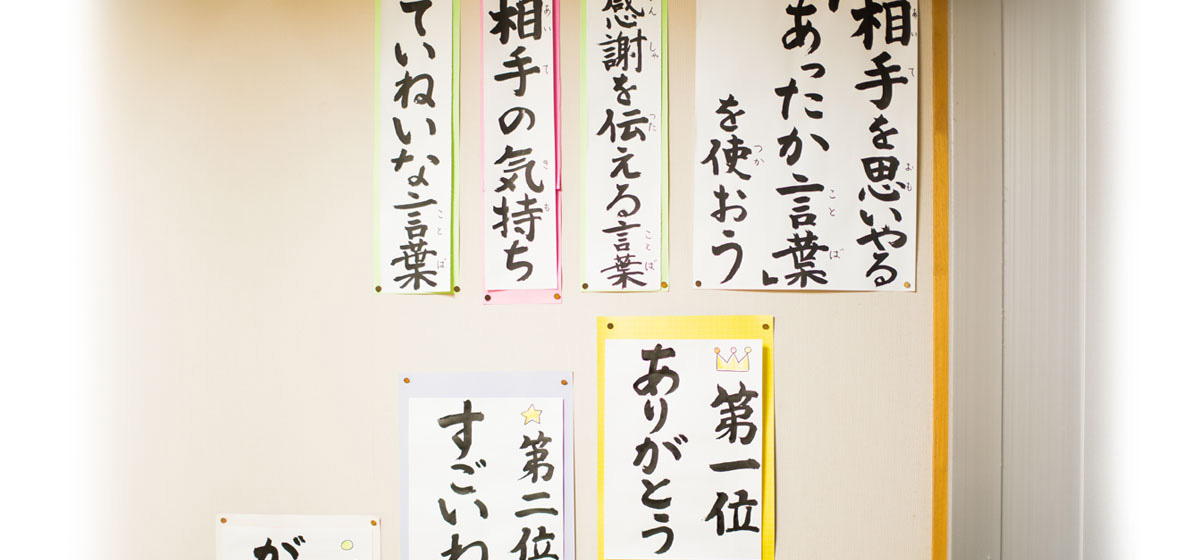 相手を思いやる
「あったか言葉」
を使おう
感謝を伝える言葉
相手の気持ち
ていねいな言葉
第一位
ありがとう
第二位
すごいね
が